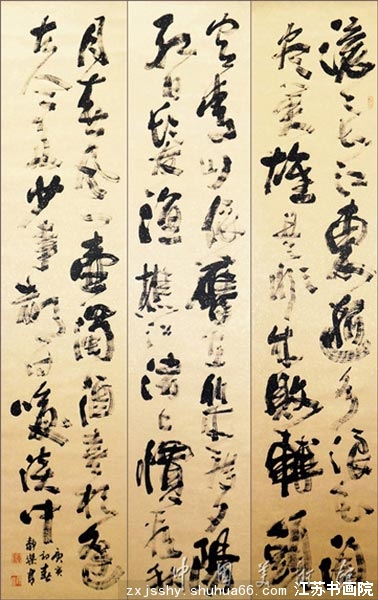 滚滚长江東逝水浪花淘
尽英雄是非成败轉頭
空青山依舊在几度夕陽
红白髮渔樵江渚上慣看秋
月春风一壶濁酒喜相逢
古今多少事都付笑谈中
庚寅
初春
zxjsshy.shuhua66.com
江苏书画院